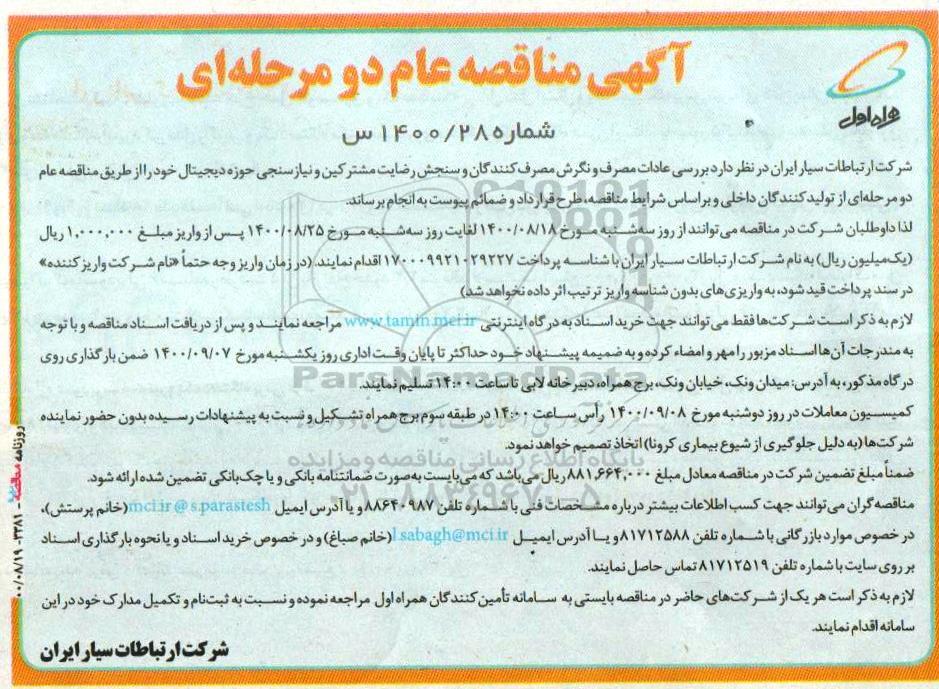 آگهی مناقصه عام دو مرحله‌ای
همراه اول
شماره ۱۴۰۰/۲۸ س
شرکت ارتباطات سیار ایران در نظر دارد بررسی عادات مصرف و نگرش مصرف کنندگان و سنجش رضایت مشترکین و نیازسنجی حوزه دیجیتال خود را از طریق مناقصه عام
دو مرحله‌ای از تولیدکنندگان داخلی و براساس شرایط مناقصه، طرح قرارداد و ضمائم پیوست به انجام برساند.
لذا داوطلبان شرکت در مناقصه می‌توانند از روز سه‌شنبه مورخ ۱۴۰۰/۰۸/۱۸ لغایت روز سه‌شنبه مورخ ۱۴۰۰/۰۸/۲۵ پس از واریز مبلغ ۱,۰۰۰,۰۰۰ ریال
(یک میلیون ریال) به نام شرکت ارتباطات سیار ایران با شناسه پرداخت ۱۷۰۰۰۹۹۲۱۰۲۹۲۲۷ اقدام نمایند. (در زمان واریز وجه حتماً «نام شرکت واریز کننده»
در سند پرداخت قید شود، به واریزی‌های بدون شناسه واریز ترتیب اثر داده نخواهد شد)
لازم به ذکر است شرکت‌ها فقط می‌توانند جهت خرید اسناد به درگاه اینترنتی www.tamin.mci.ir مراجعه نمایند و پس از دریافت اسناد مناقصه و با توجه
به مندرجات آن‌ها اسناد مزبور را مهر و امضاء کرده و به ضمیمه پیشنهاد خود حداکثر تا پایان وقت اداری روز یکشنبه مورخ ۱۴۰۰/۰۹/۰۷ ضمن بارگذاری روی
درگاه مذکور، به آدرس: میدان ونک، خیابان ونک، برج همراه، دبیرخانه لابی تا ساعت ۱۴:۰۰ تسلیم نمایند.
کمیسیون معاملات در روز دوشنبه مورخ ۱۴۰۰/۰۹/۰۸ رأس ساعت ۱۴:۰۰ در طبقه سوم برج همراه تشکیل و نسبت به پیشنهادات رسیده بدون حضور نماینده
شرکت‌ها (به دلیل جلوگیری از شیوع بیماری کرونا) اتخاذ تصمیم خواهد نمود.
ضمناً مبلغ تضمین شرکت در مناقصه معادل مبلغ ۸۸۱,۶۶۴,۰۰۰ ریال می‌باشد که می‌بایست به صورت ضمانتنامه بانکی و یا چک بانکی تضمین شده ارائه شود.
مناقصه‌گران می‌توانند جهت کسب اطلاعات بیشتر درباره مشخصات فنی با شماره تلفن ۸۸۶۴۰۹۸۷ و یا آدرس ایمیل mci.ir@s.parastesh (خانم پرستش)،
در خصوص موارد بازرگانی با شماره تلفن ۸۱۷۱۲۵۸۸ و یا آدرس ایمیل l.sabagh@mci.ir (خانم صباغ) و در خصوص خرید اسناد و یا نحوه بارگذاری اسناد
بر روی سایت با شماره تلفن ۸۱۷۱۲۵۱۹ تماس حاصل نمایند.
لازم به ذکر است هر یک از شرکت‌های حاضر در مناقصه بایستی به سامانه تأمین کنندگان همراه اول مراجعه نموده و نسبت به ثبت نام و تکمیل مدارک خود در این
سامانه اقدام نمایند.
شرکت ارتباطات سیار ایران
روزنامه مناقصه - ۳۳۸۱ - ۰۰/۰۸/۱۹
ParsNamadData
پایگاه اطلاع رسانی مناقصه و مزایده
۰۲۱-۸۸۳۴۹۶۷۰-۵